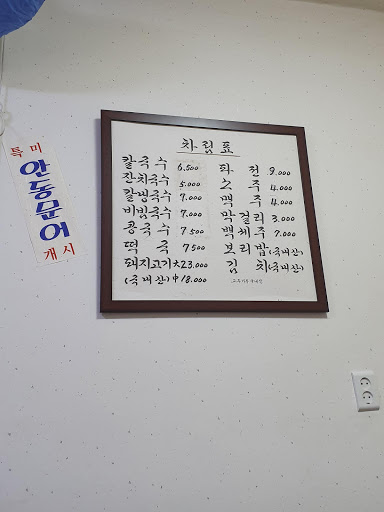 특미
안동문어
개시
차림표
칼국수 6.500
잔치국수 5.000
칼빙국수 7.000
비빔국수 7.000
콩국수 7500
떡국 7500
돼지고기 大23.000
(국내산) 中18.000
파전 9.000
소주 4.000
맥주 4.000
막걸리 3.000
백세주 7.000
보리밥(국내산)
김치(국내산)